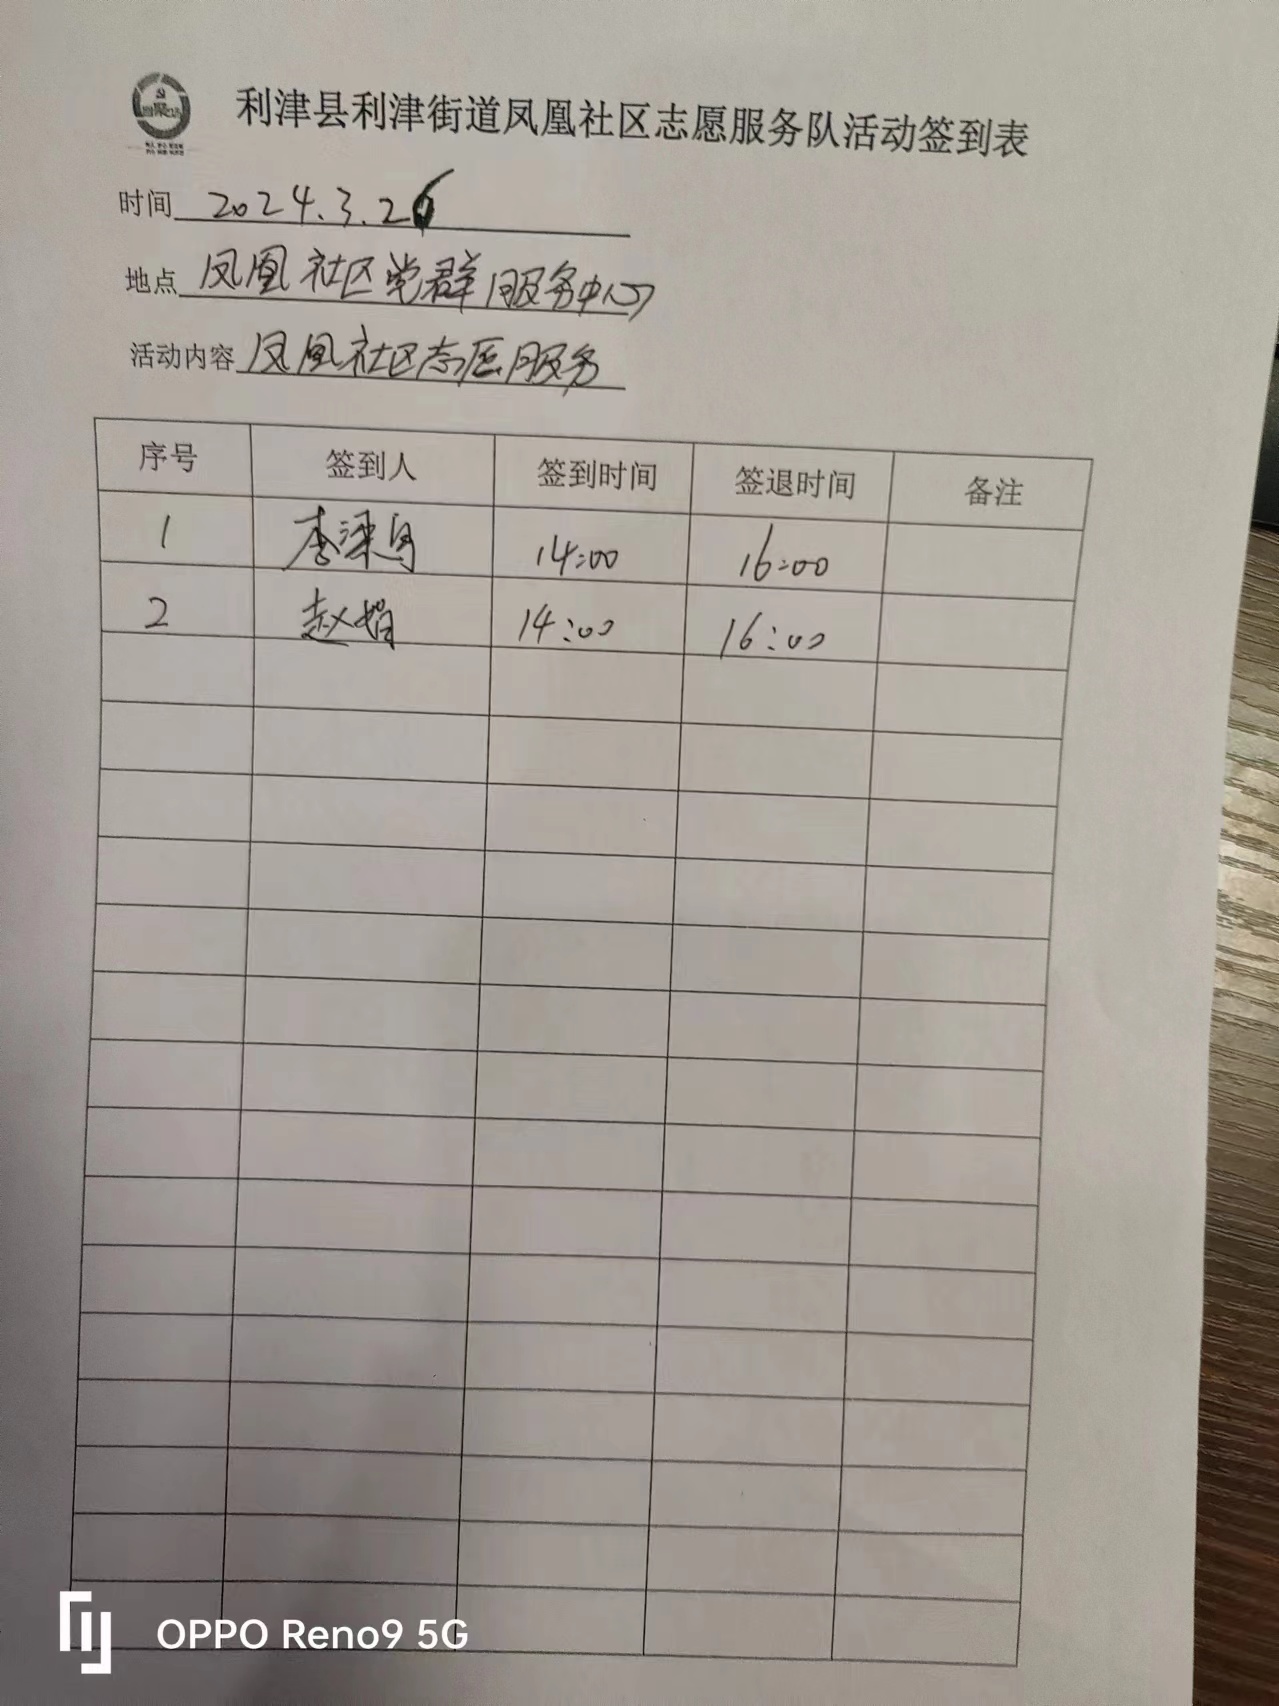 利津县利津街道凤凰社区志愿服务队活动签到表
时间 2024.3.26
地点 凤凰社区党群服务中心
活动内容 凤凰社区志愿服务
序号 签到人 签到时间 签退时间 备注
1 李 14:00 16:00
2 赵娟 14:00 16:00
OPPO Reno9 5G